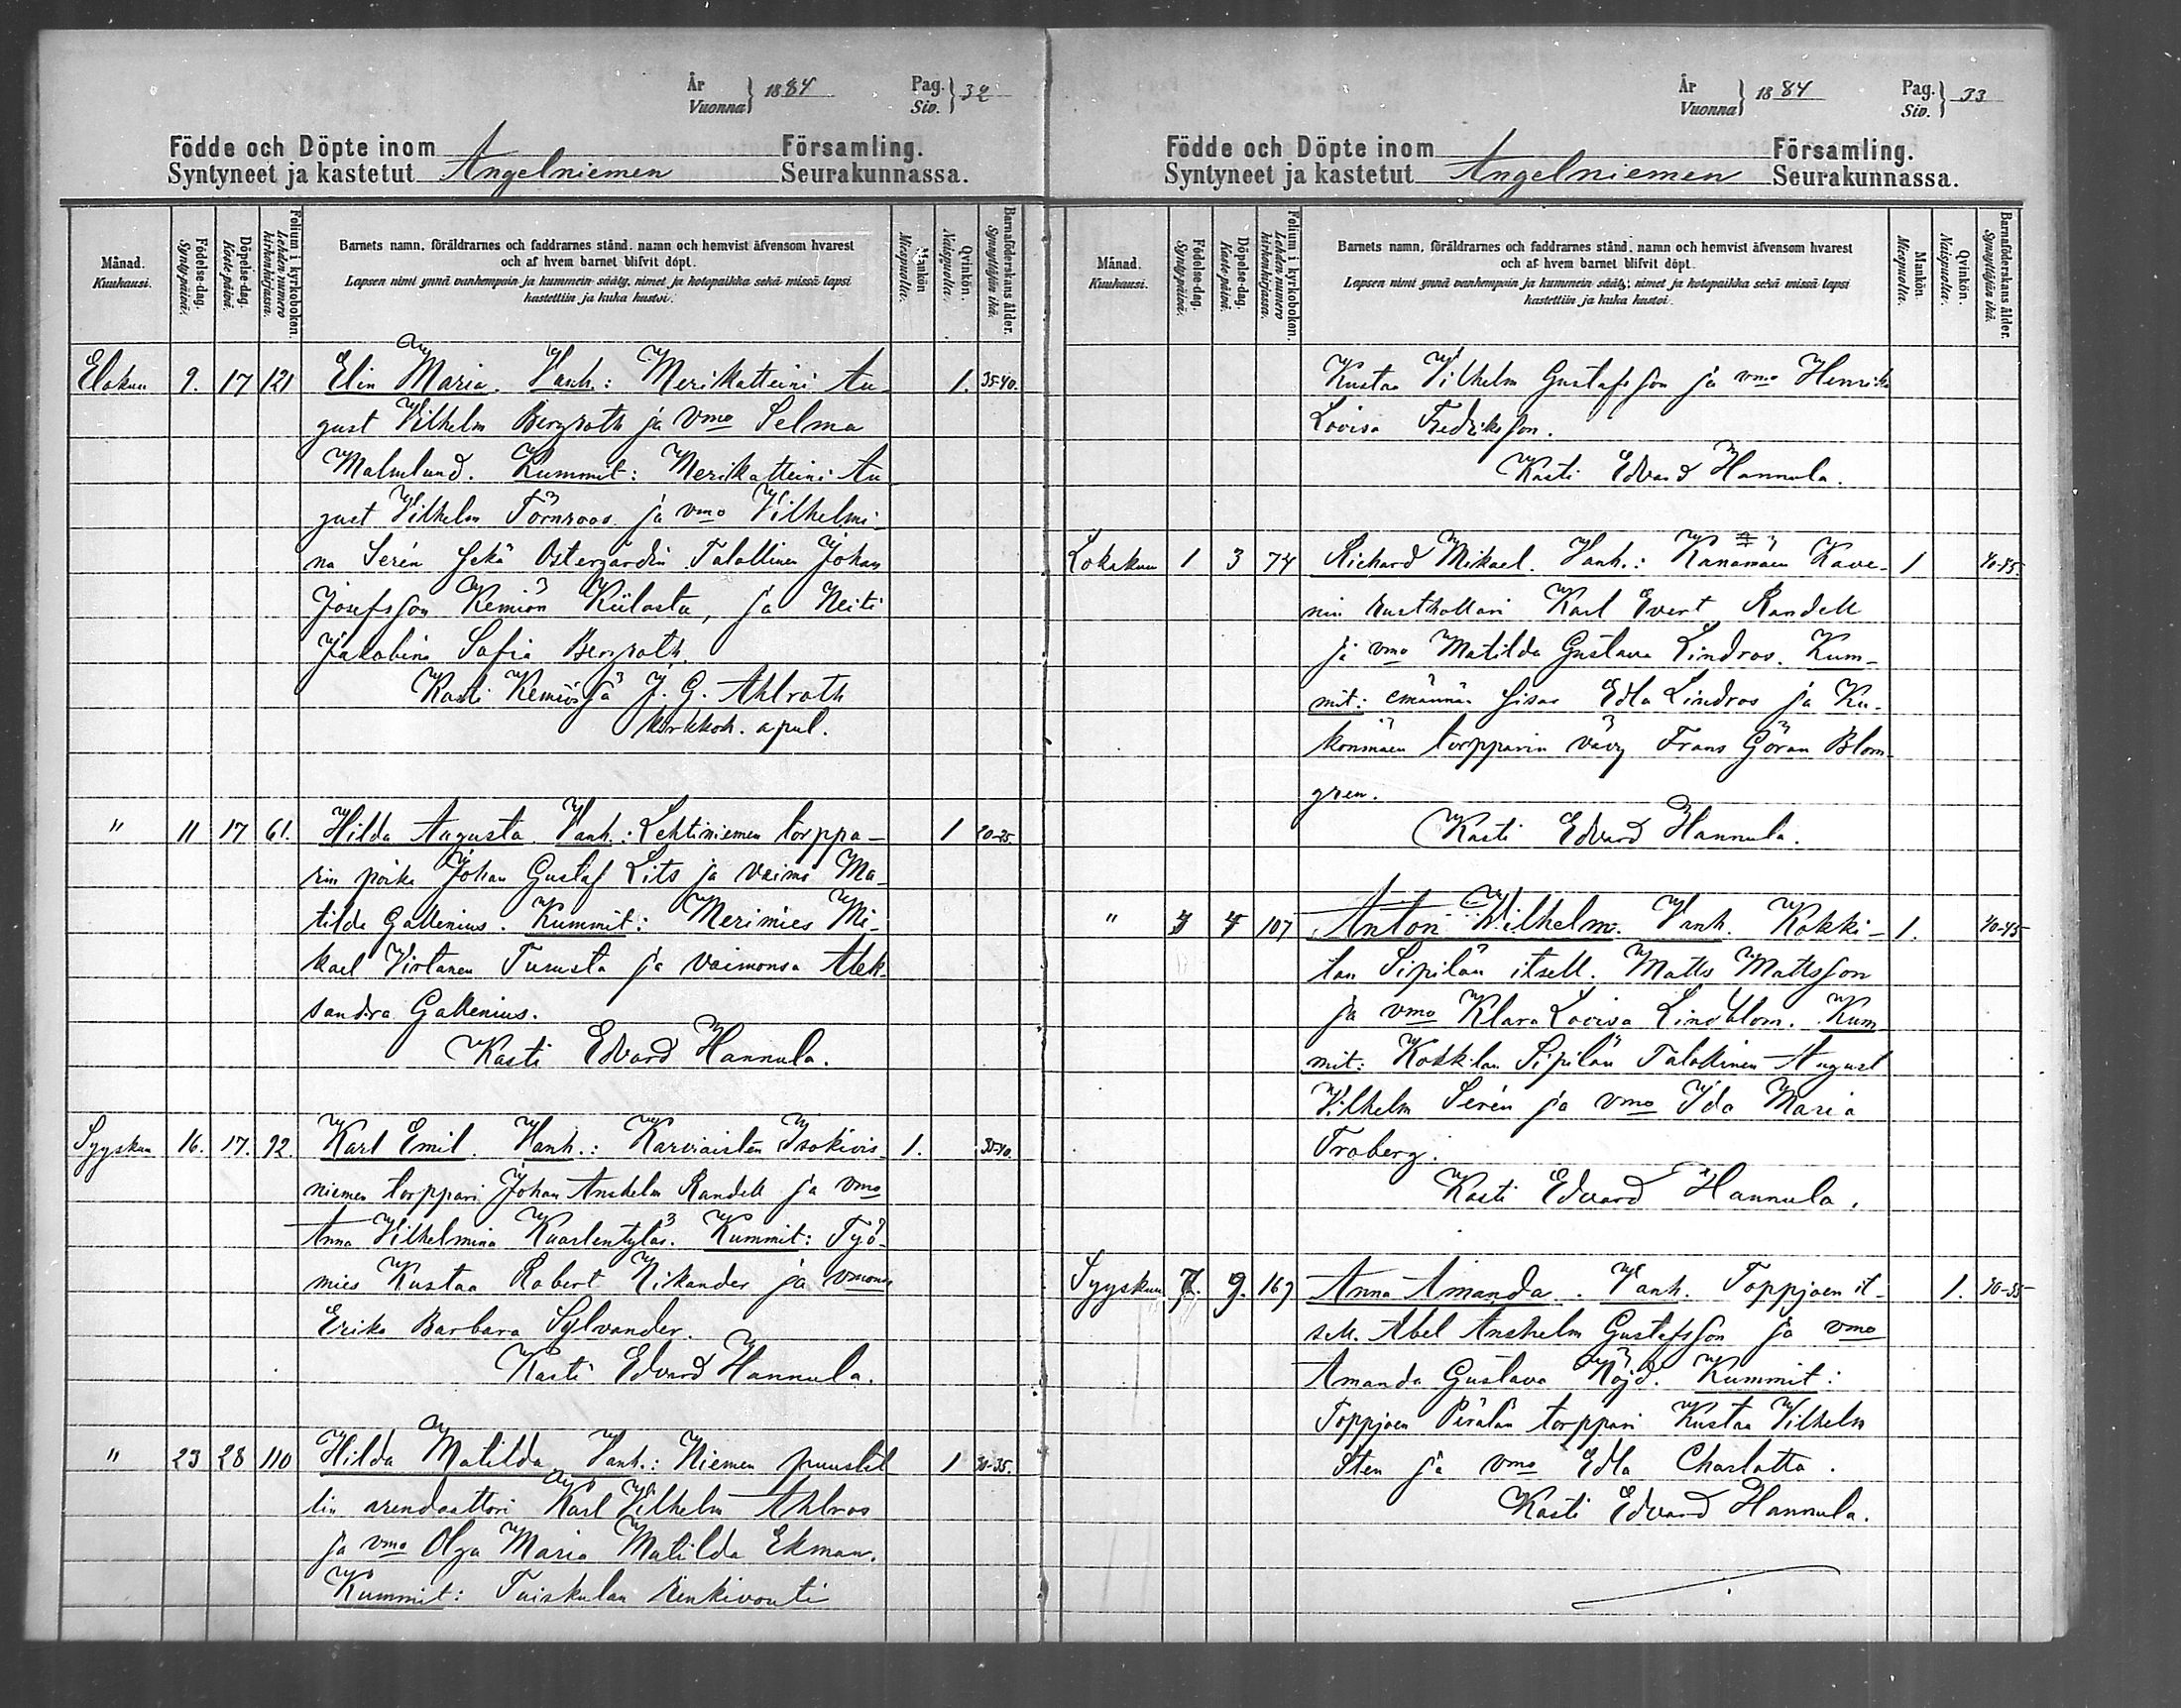 År
Vuonna } 1884
Pag.
Siv. } 32
Födde och Döpte inom Församling.
Syntyneet ja kastetut Angelniemen Seurakunnassa.
Månad.
Kuukausi.
Födelse-dag.
Syntypäivä.
Döpelse-dag.
Kastepäivä.
Folium i kyrkoboken.
Lehden numero kirkonkirjassa.
Barnets namn, föräldrarnes och faddrarnes stånd, namn och hemvist äfvensom hvarest
och af hvem barnet blifvit döpt.
Lapsen nimi ynnä vanhempain ja kummein sääty, nimet ja kotopaikka sekä missä lapsi
kastettiin ja kuka kastoi.
Mankön.
Miespuolta.
Qvinkön.
Naispuolta.
Barnaföderskans ålder.
Synnyttäjän ikä.
Elokuu 9. 17 121 Elin Maria. Vanh.: Merikatteini Au- 1. 35-40.
gust Vilhelm Bergroth ja vmo Selma
Malmlund. Kummit: Merikatteini Au
gust Vilhelm Törnroos ja vmo Vilhelmi-
na Serén sekä Ostergårdin Talollinen Johan
Josefsson Kemiön Kiilasta, ja Neiti
Jakobina Sofia Bergroth.
Kasti Kemiössä J. G. Ahlroth
kirkkoh. apul.
" 11 17 61. Hilda Augusta. Vanh.: Lehtiniemen torppa- 1 20-25.
rin poika Johan Gustaf Lits ja vaimo Ma-
tilda Gallenius. Kummit: Merimies Mi-
kael Virtanen Turusta ja vaimonsa Alek-
sandra Gallenius.
Kasti Edvard Hannula.
Syyskuu 16. 17. 92. Karl Emil. Vanh.: Karviaisten Isokivis- 1. 35-40.
niemen torppari Johan Anshelm Randell ja vmo
Anna Vilhelmina Kaarlentytär. Kummit: Työ-
mies Kustaa Robert Nikander ja vmonsa
Erika Barbara Sylvander.
Kasti Edvard Hannula.
" 23 28 110 Hilda Matilda. Vanh.: Niemen puustel 1 30-35.
lin arendaattori Karl Vilhelm Ahlros
ja vmo Olga Maria Matilda Ekman.
Kummit: Tuiskulan renkivouti
År
Vuonna } 1884
Pag.
Siv. } 33
Födde och Döpte inom Församling.
Syntyneet ja kastetut Angelniemen Seurakunnassa.
Månad.
Kuukausi.
Födelse-dag.
Syntypäivä.
Döpelse-dag.
Kastepäivä.
Folium i kyrkoboken.
Lehden numero kirkonkirjassa.
Barnets namn, föräldrarnes och faddrarnes stånd, namn och hemvist äfvensom hvarest
och af hvem barnet blifvit döpt.
Lapsen nimi ynnä vanhempain ja kummein sääty, nimet ja kotopaikka sekä missä lapsi
kastettiin ja kuka kastoi.
Mankön.
Miespuolta.
Qvinkön.
Naispuolta.
Barnaföderskans ålder.
Synnyttäjän ikä.
Kustaa Vilhelm Gustafsson ja vmo Henrika
Lovisa Fredriksson.
Kasti Edvard Hannula.
Lokakuu 1 3 74 Richard Mikael. Vanh.: Kanamäen Kave- 1 40-45.
nin rusthollari Karl Evert Randell
ja vmo Matilda Gustava Lindros. Kum-
mit: emännän sisar Edla Lindros ja Ku-
konmäen torpparin vävy Frans Göran Blom-
gren.
Kasti Edvard Hannula.
" 107 Anton Vilhelm. Vanh. Kokki- 1. 40-45
lan Sipilän itsell. Matts Mattsson
ja vmo Klara Lovisa Lindblom. Kum
mit: Kokkilan Sipilän Talollinen August
Vilhelm Serén ja vmo Ida Maria
Froberg.
Kasti Edvard Hannula.
Syyskuu 7. 9. 167 Anna Amanda. Vanh. Toppjoen it- 1. 30-35
sell. Abel Anshelm Gustafsson ja vmo
Amanda Gustava Höjd. Kummit:
Toppjoen Perälän torppari Kustaa Vilhelm
Sten ja vmo Edla Charlotta.
Kasti Edvard Hannula.